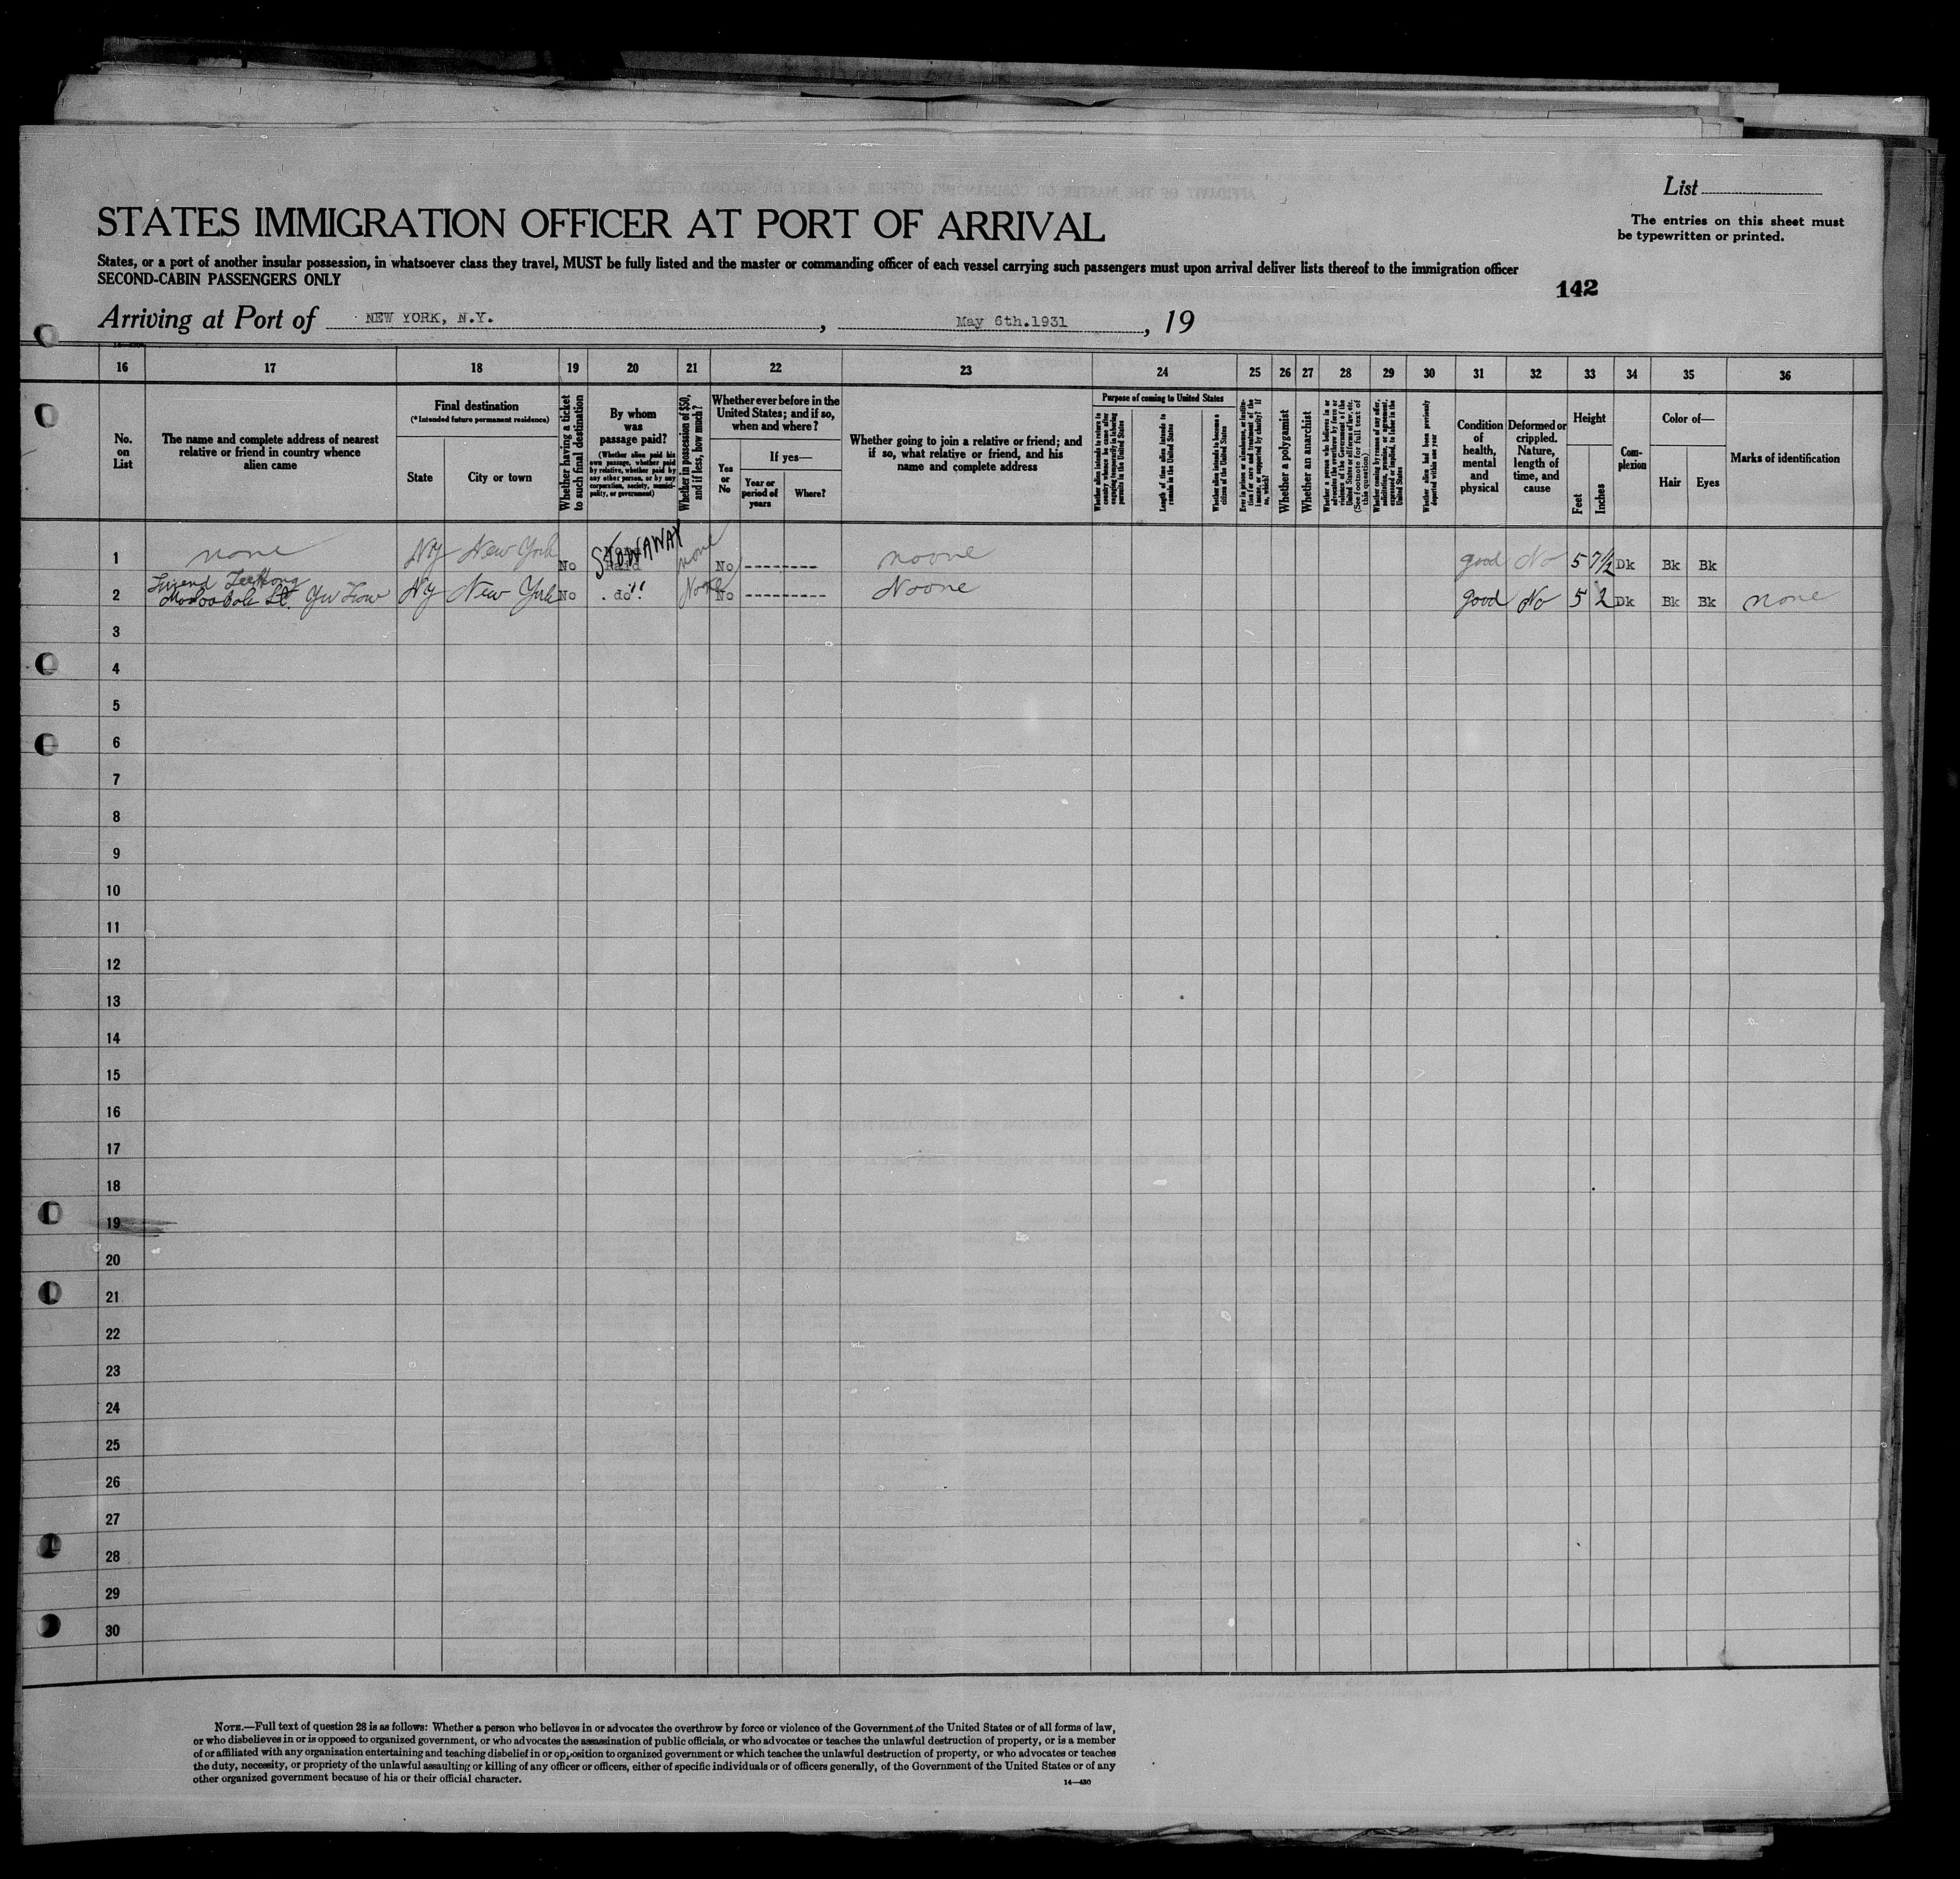 List
The entries on this sheet must
be typewritten or printed.
STATES IMMIGRATION OFFICER AT PORT OF ARRIVAL
States, or a port of another insular possession, in whatsoever class they travel, MUST be fully listed and the master or commanding officer of each vessel carrying such passengers must upon arrival deliver lists thereof to the immigration officer
SECOND-CABIN PASSENGERS ONLY
142
Arriving at Port of NEW YORK, N.Y. , May 6th.1931 , 19
16 17 18 19 20 21 22 23 24 25 26 27 28 29 30 31 32 33 34 35 36
No. on List
The name and complete address of nearest
relative or friend in country whence
alien came
Final destination
(*Intended future permanent residence)
State
City or town
Whether having a ticket
to such final destination
By whom
was
passage paid?
(Whether alien paid his
own passage, whether paid
by relative, whether paid by
any other person, or by any
corporation, society, munici-
pality, or government)
Whether in possession of $50,
and if less, how much?
Whether ever before in the
United States; and if so,
when and where?
Yes
or
No
If yes—
Year or
period of
years
Where?
Whether going to join a relative or friend; and
if so, what relative or friend, and his
name and complete address
Purpose of coming to United States
Whether alien intends to return to
country whence he came after
engaging temporarily in laboring
pursuits in the United States
Length of time alien intends to
remain in the United States
Whether alien intends to become a
citizen of the United States
Ever in prison or almshouse, or institu-
tion for care and treatment of the
insane, or supported by charity? If
so, which?
Whether a polygamist
Whether an anarchist
Whether a person who believes in or
advocates the overthrow by force or
violence of the Government of the
United States or all forms of law, etc.
(See footnote for full text of
this question)
Whether coming by reason of any offer,
solicitation, promise, or agreement,
expressed or implied, to labor in the
United States
Whether alien had been previously
deported within one year
Condition
of
health,
mental
and
physical
Deformed or
crippled.
Nature,
length of
time, and
cause
Height
Feet
Inches
Com-
plexion
Color of—
Hair
Eyes
Marks of identification
1 none NY New York No STOWAWAY Paid none No --------- noone good No 5 7½ Dk Bk Bk
2 Friend NY New York No . do. " None No ---------- Noone good No 5 2 Dk Bk Bk none
3
4
5
6
7
8
9
10
11
12
13
14
15
16
17
18
19
20
21
22
23
24
25
26
27
28
29
30
NOTE.—Full text of question 28 is as follows: Whether a person who believes in or advocates the overthrow by force or violence of the Government of the United States or of all forms of law,
or who disbelieves in or is opposed to organized government, or who advocates the assassination of public officials, or who advocates or teaches the unlawful destruction of property, or is a member
of or affiliated with any organization entertaining and teaching disbelief in or opposition to organized government or which teaches the unlawful destruction of property, or who advocates or teaches
the duty, necessity, or propriety of the unlawful assaulting or killing of any officer or officers, either of specific individuals or of officers generally, of the Government of the United States or of any
other organized government because of his or their official character.
14—430